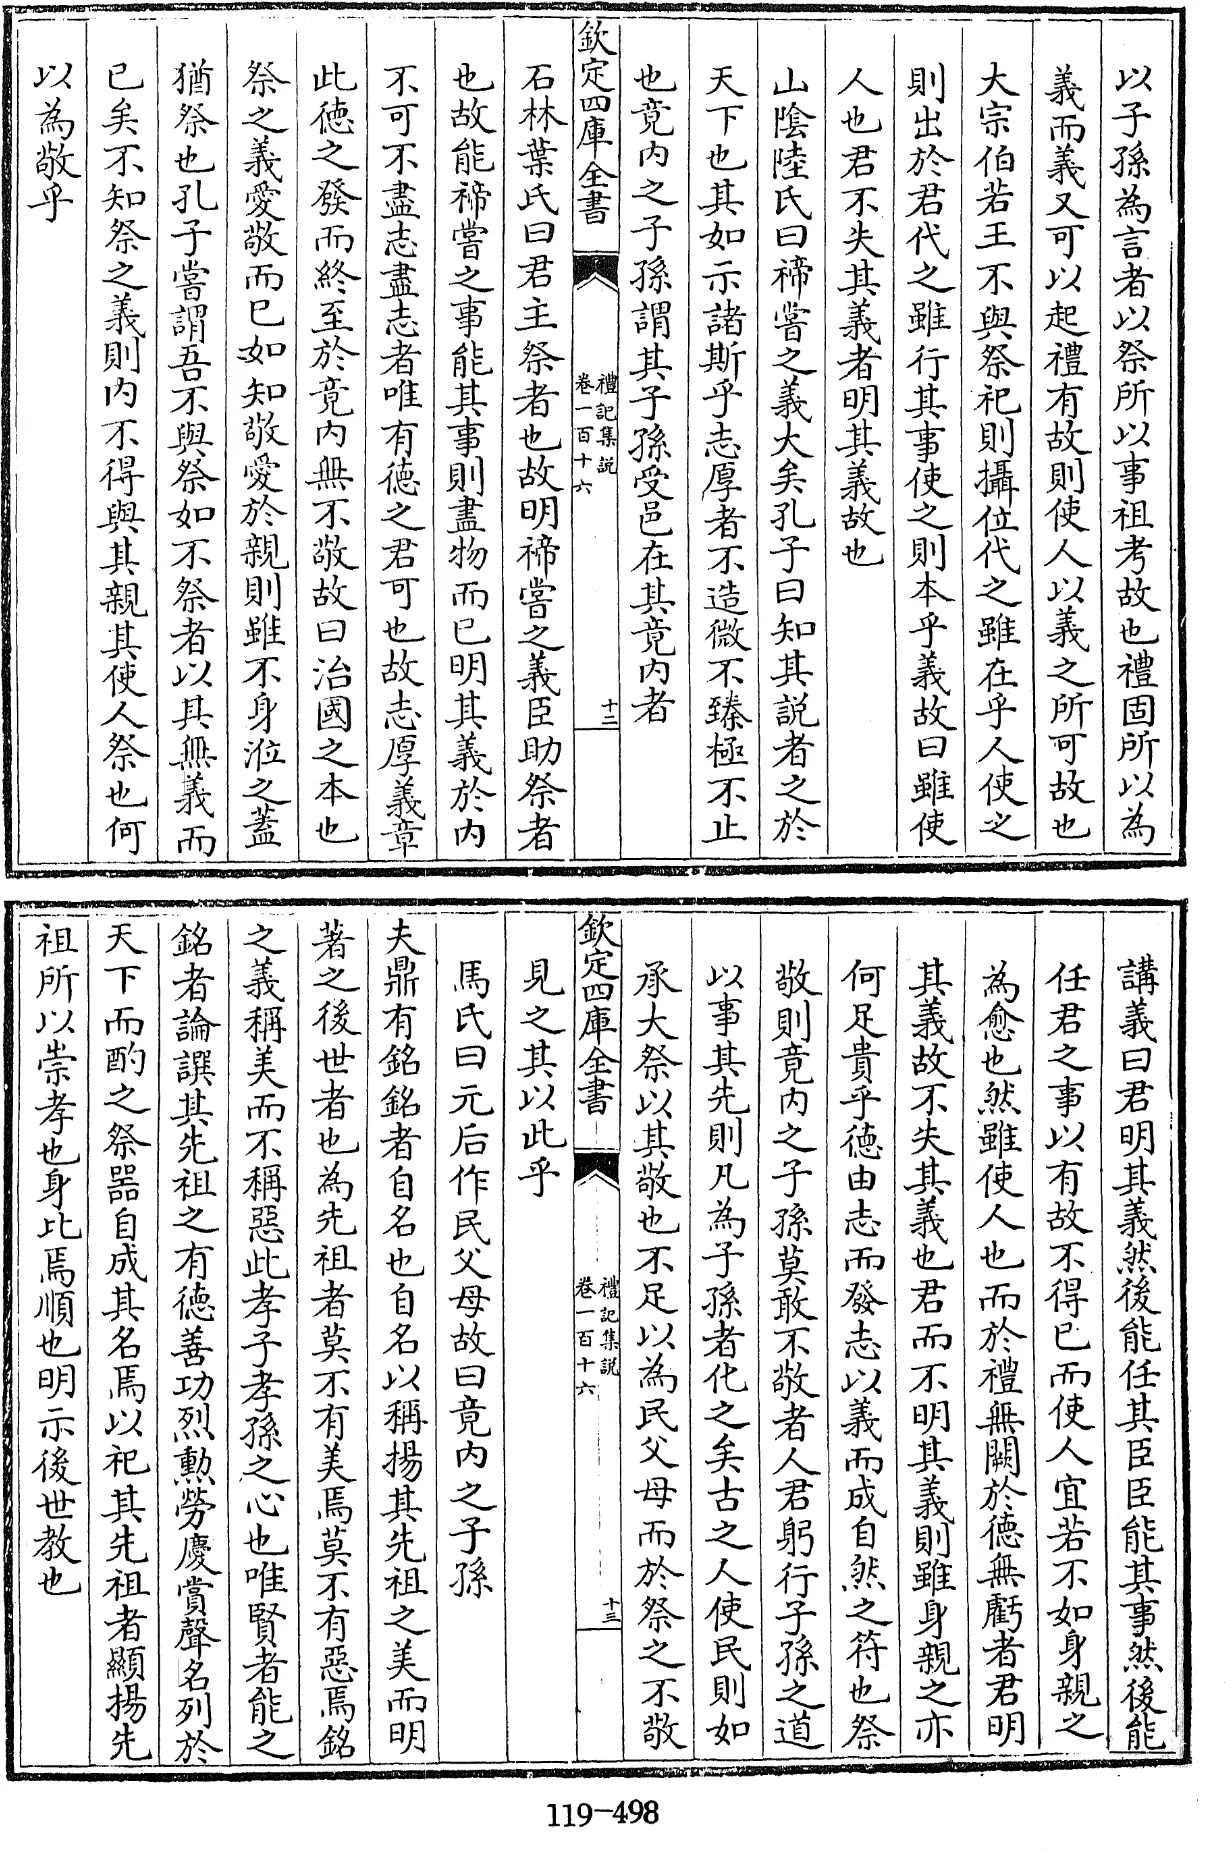 以子孫為言者以祭所以事祖考故也禮固所以為
義而義又可以起禮有故則使人以義之所可故也
大宗伯若王不與祭祀則攝位代之雖在乎人使之
則出於君代之雖行其事使之則本乎義故曰雖使
人也君不失其義者明其義故也
山陰陸氏曰禘嘗之義大矣孔子曰知其説者之於
天下也其如示諸斯乎志厚者不造微不臻極不止
也竟内之子孫謂其子孫受邑在其竟内者
欽定四庫全書
禮記集説
卷一百十六
十二
石林葉氏曰君主祭者也故明禘嘗之義臣助祭者
也故能禘嘗之事能其事則盡物而已明其義於内
不可不盡志盡志者唯有德之君可也故志厚義章
此德之發而終至於竟内無不敬故曰治國之本也
祭之義愛敬而已如知敬愛於親則雖不身涖之蓋
猶祭也孔子嘗謂吾不與祭如不祭者以具無義而
已矣不知祭之義則内不得與其親其使人祭也何
以為敬乎
講義曰君明其義然後能任其臣臣能其事然後能
任君之事以有故不得已而使人宜若不如身親之
為愈也然雖使人也而於禮無闕於德無虧者君明
其義故不失其義也君而不明其義則雖身親之亦
何足貴乎德由志而發志以義而成自然之符也祭
敬則竟内之子孫莫敢不敬者人君躬行子孫之道
以事其先則凡為子孫者化之矣古之人使民則如
承大祭以其敬也不足以為民父母而於祭之不敬
欽定四庫全書
禮記集説
卷一百十六
十三
見之其以此乎
馬氏曰元后作民父母故曰竟内之子孫
夫鼎有銘銘者自名也自名以稱揚其先祖之美而明
著之後世者也為先祖者莫不有美焉莫不有惡焉銘
之義稱美而不稱惡此孝子孝孫之心也唯賢者能之
銘者論譔其先祖之有德善功烈勲勞慶賞聲名列於
天下而酌之祭器自成其名焉以祀其先祖者顯揚先
祖所以崇孝也身比焉順也明示後世教也
119-498